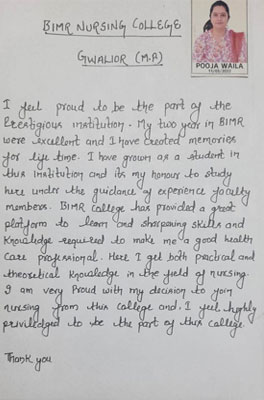 BIMR NURSING COLLEGE
GWALIOR (M.P)
POOJA WAILA
I feel proud to be the part of the
Prestigious institution. My two year in BIMR
were excellent and I have created memories
for life time. I have grown as a student in
this institution and its my honour to study
here under the guidance of experience faculty
members. BIMR College has provided a great
platform to learn and sharpening skills and
Knowledge required to make me a good health
Care professional. Here I get both practical and
theoretical Knowledge in the field of nursing.
I am very Proud with my decision to join
nursing from this College and. I feel highly
priviledged to be the part of this College
Thank you